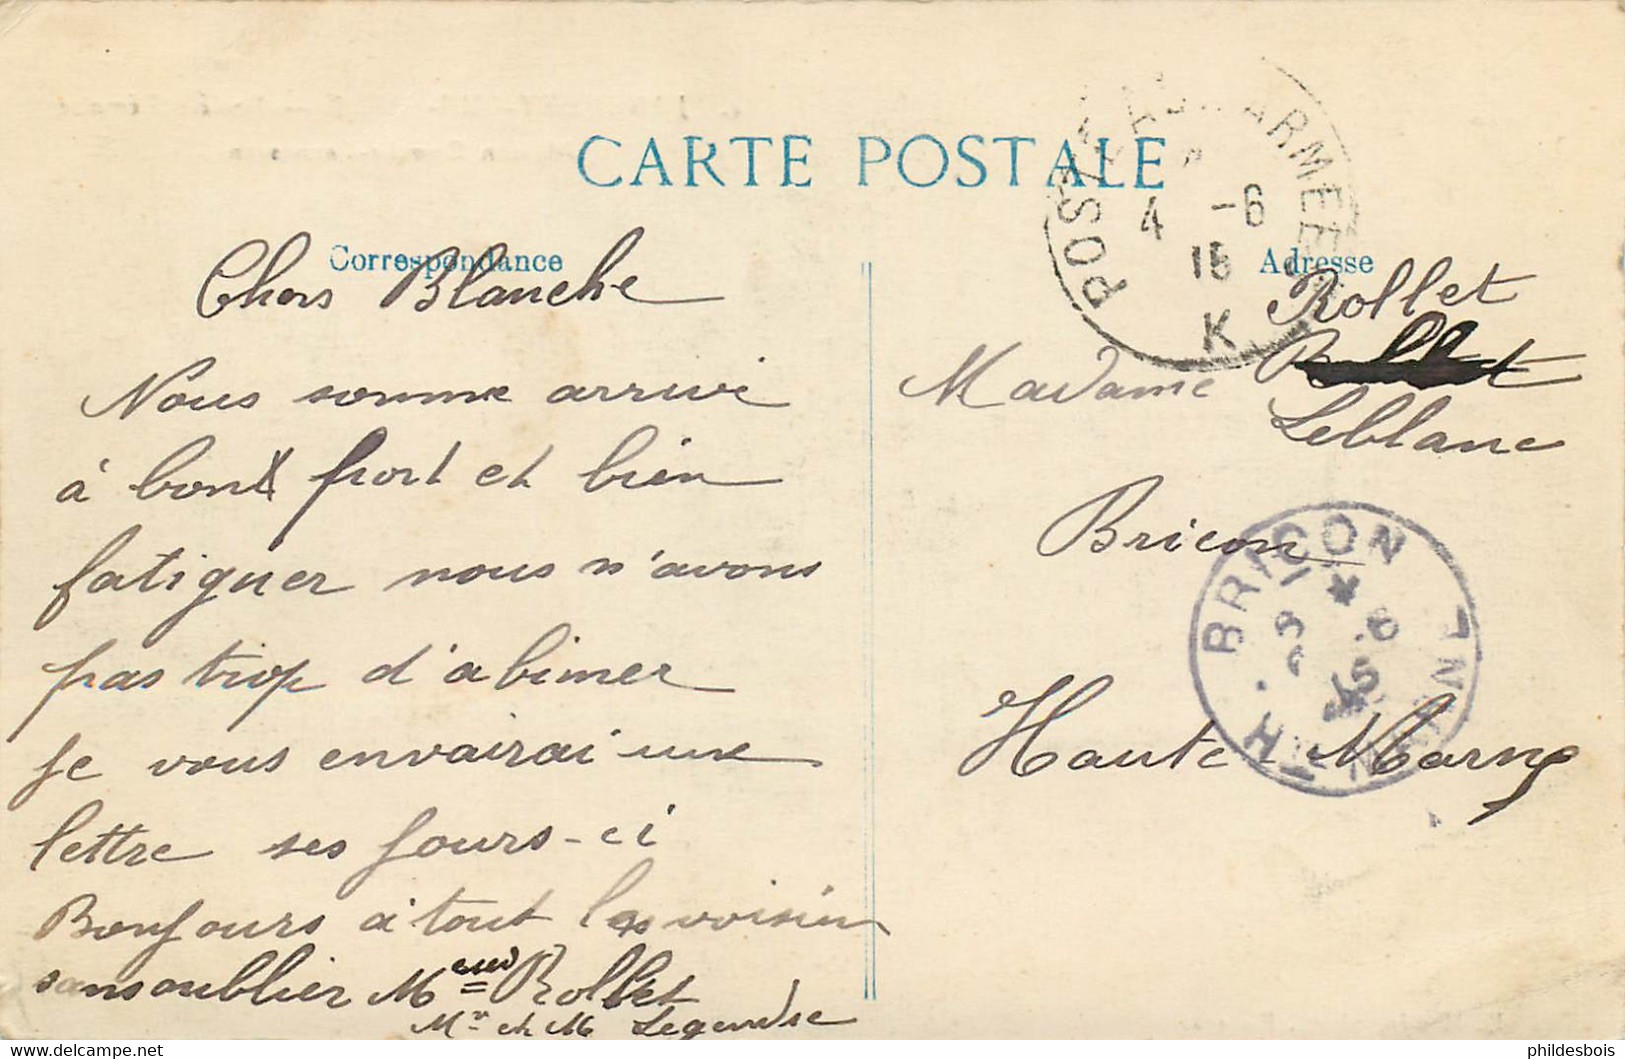 CARTE POSTALE
Correspondance
Chers Blanche
Nous somme arrivé
à bon port et bien
fatiguer nous n'avons
pas trop d'abimer
je vous envairai une
lettre ses jours-ci
Bonjours à tout les voisin
sans oublier Rollet
Mr et M Legendre
POSTE AUX ARMÉES
4 -6
15
K
Adresse
Rollet
Madame
Leblanc
Bricon
Haute Marne
BRICON
HTE MARNE
15
phildesbois